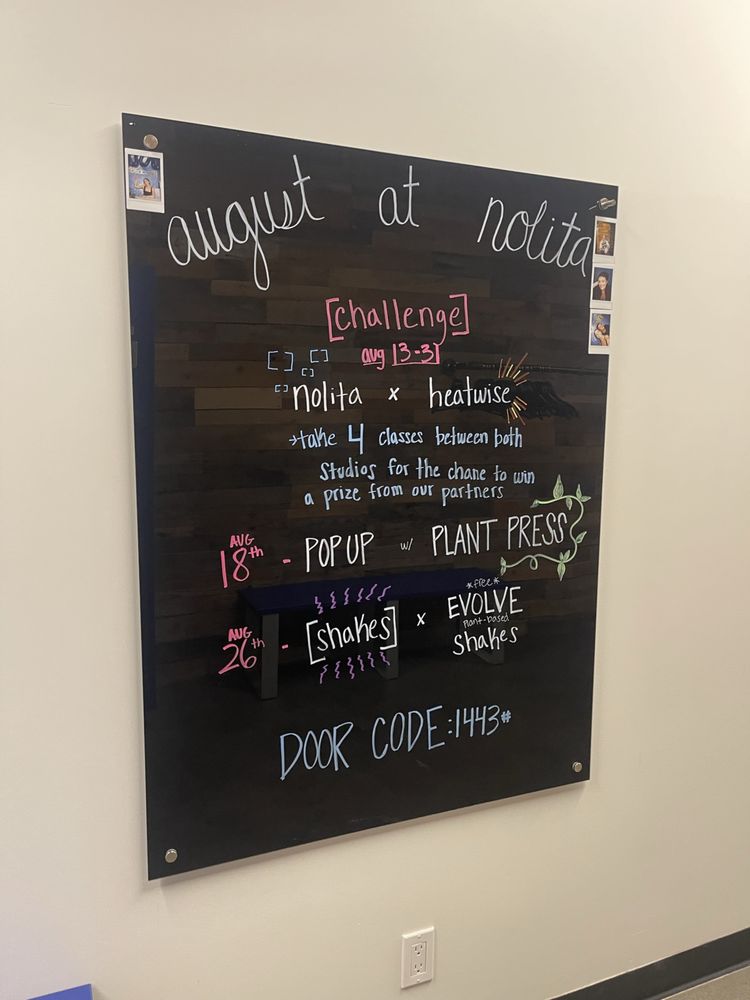 august at nolita
[challenge]
aug 13-31
nolita x heatwise
→take 4 classes between both
Studios for the chane to win
a prize from our partners
AUG
18th - POP UP w/ PLANT PRESS
*free*
AUG
26th - [shakes] x EVOLVE
Plant-based
shakes
DOOR CODE:1443#